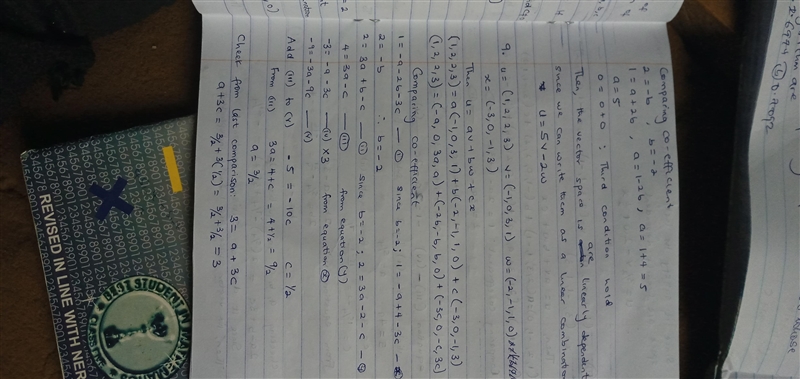 Comparing co-efficient
2 = -b , b = -2
1 = a + 2b , a = 1 - 2b , a = 1 + 4 = 5
a = 5
0 = 0 + 0 ; Third condition hold
Then, the vector space is are linearly dependent
since we can write them as a linear combination
u = 5v - 2w
9. u = (1, 2, 2, 3) v = (-1, 0, 3, 1) w = (-2, -1, 1, 0)
x = (-3, 0, -1, 3)
Then u = av + bw + cx
(1, 2, 2, 3) = a(-1, 0, 3, 1) + b(-2, -1, 1, 0) + c(-3, 0, -1, 3)
(1, 2, 2, 3) = (-a, 0, 3a, a) + (-2b, -b, b, 0) + (-3c, 0, -c, 3c)
Comparing co-efficient
1 = -a - 2b - 3c — (i) since b = -2 ; 1 = -a + 4 - 3c —
2 = -b ∴ b = -2
2 = 3a + b - c — (ii) since b = -2 ; 2 = 3a - 2 - c —
4 = 3a - c — (iii) from equation (y)
-3 = -a - 3c — (iv) ×3 from equation (x)
-9 = -3a - 9c — (v)
Add (iii) to (v) -5 = -10c c = 1/2
From (iii) 3a = 4 + c = 4 + 1/2 = 9/2
a = 3/2
Check from last comparison: 3 = a + 3c
a + 3c = 3/2 + 3(1/2) = 3/2 + 3/2 = 3
REVISED IN LINE WITH NER
BEST STUDENT IN